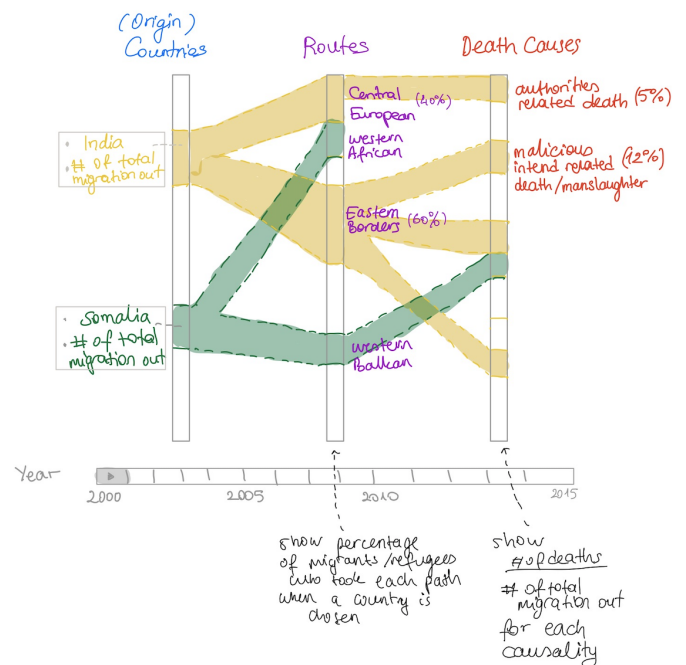 (Origin)
Countries
Routes
Death Causes
India
# of total
migration out
Somalia
# of total
migration out
Central (40%)
European
western
African
Eastern
Borders (60%)
western
Balkan
authorities
related death (5%)
malicious
intend related (12%)
death/manslaughter
Year
2000
2005
2010
2015
show percentage
of migrants/refugees
who took each path
when a country is
chosen
show
# of deaths
# of total
migration out
for each
causality